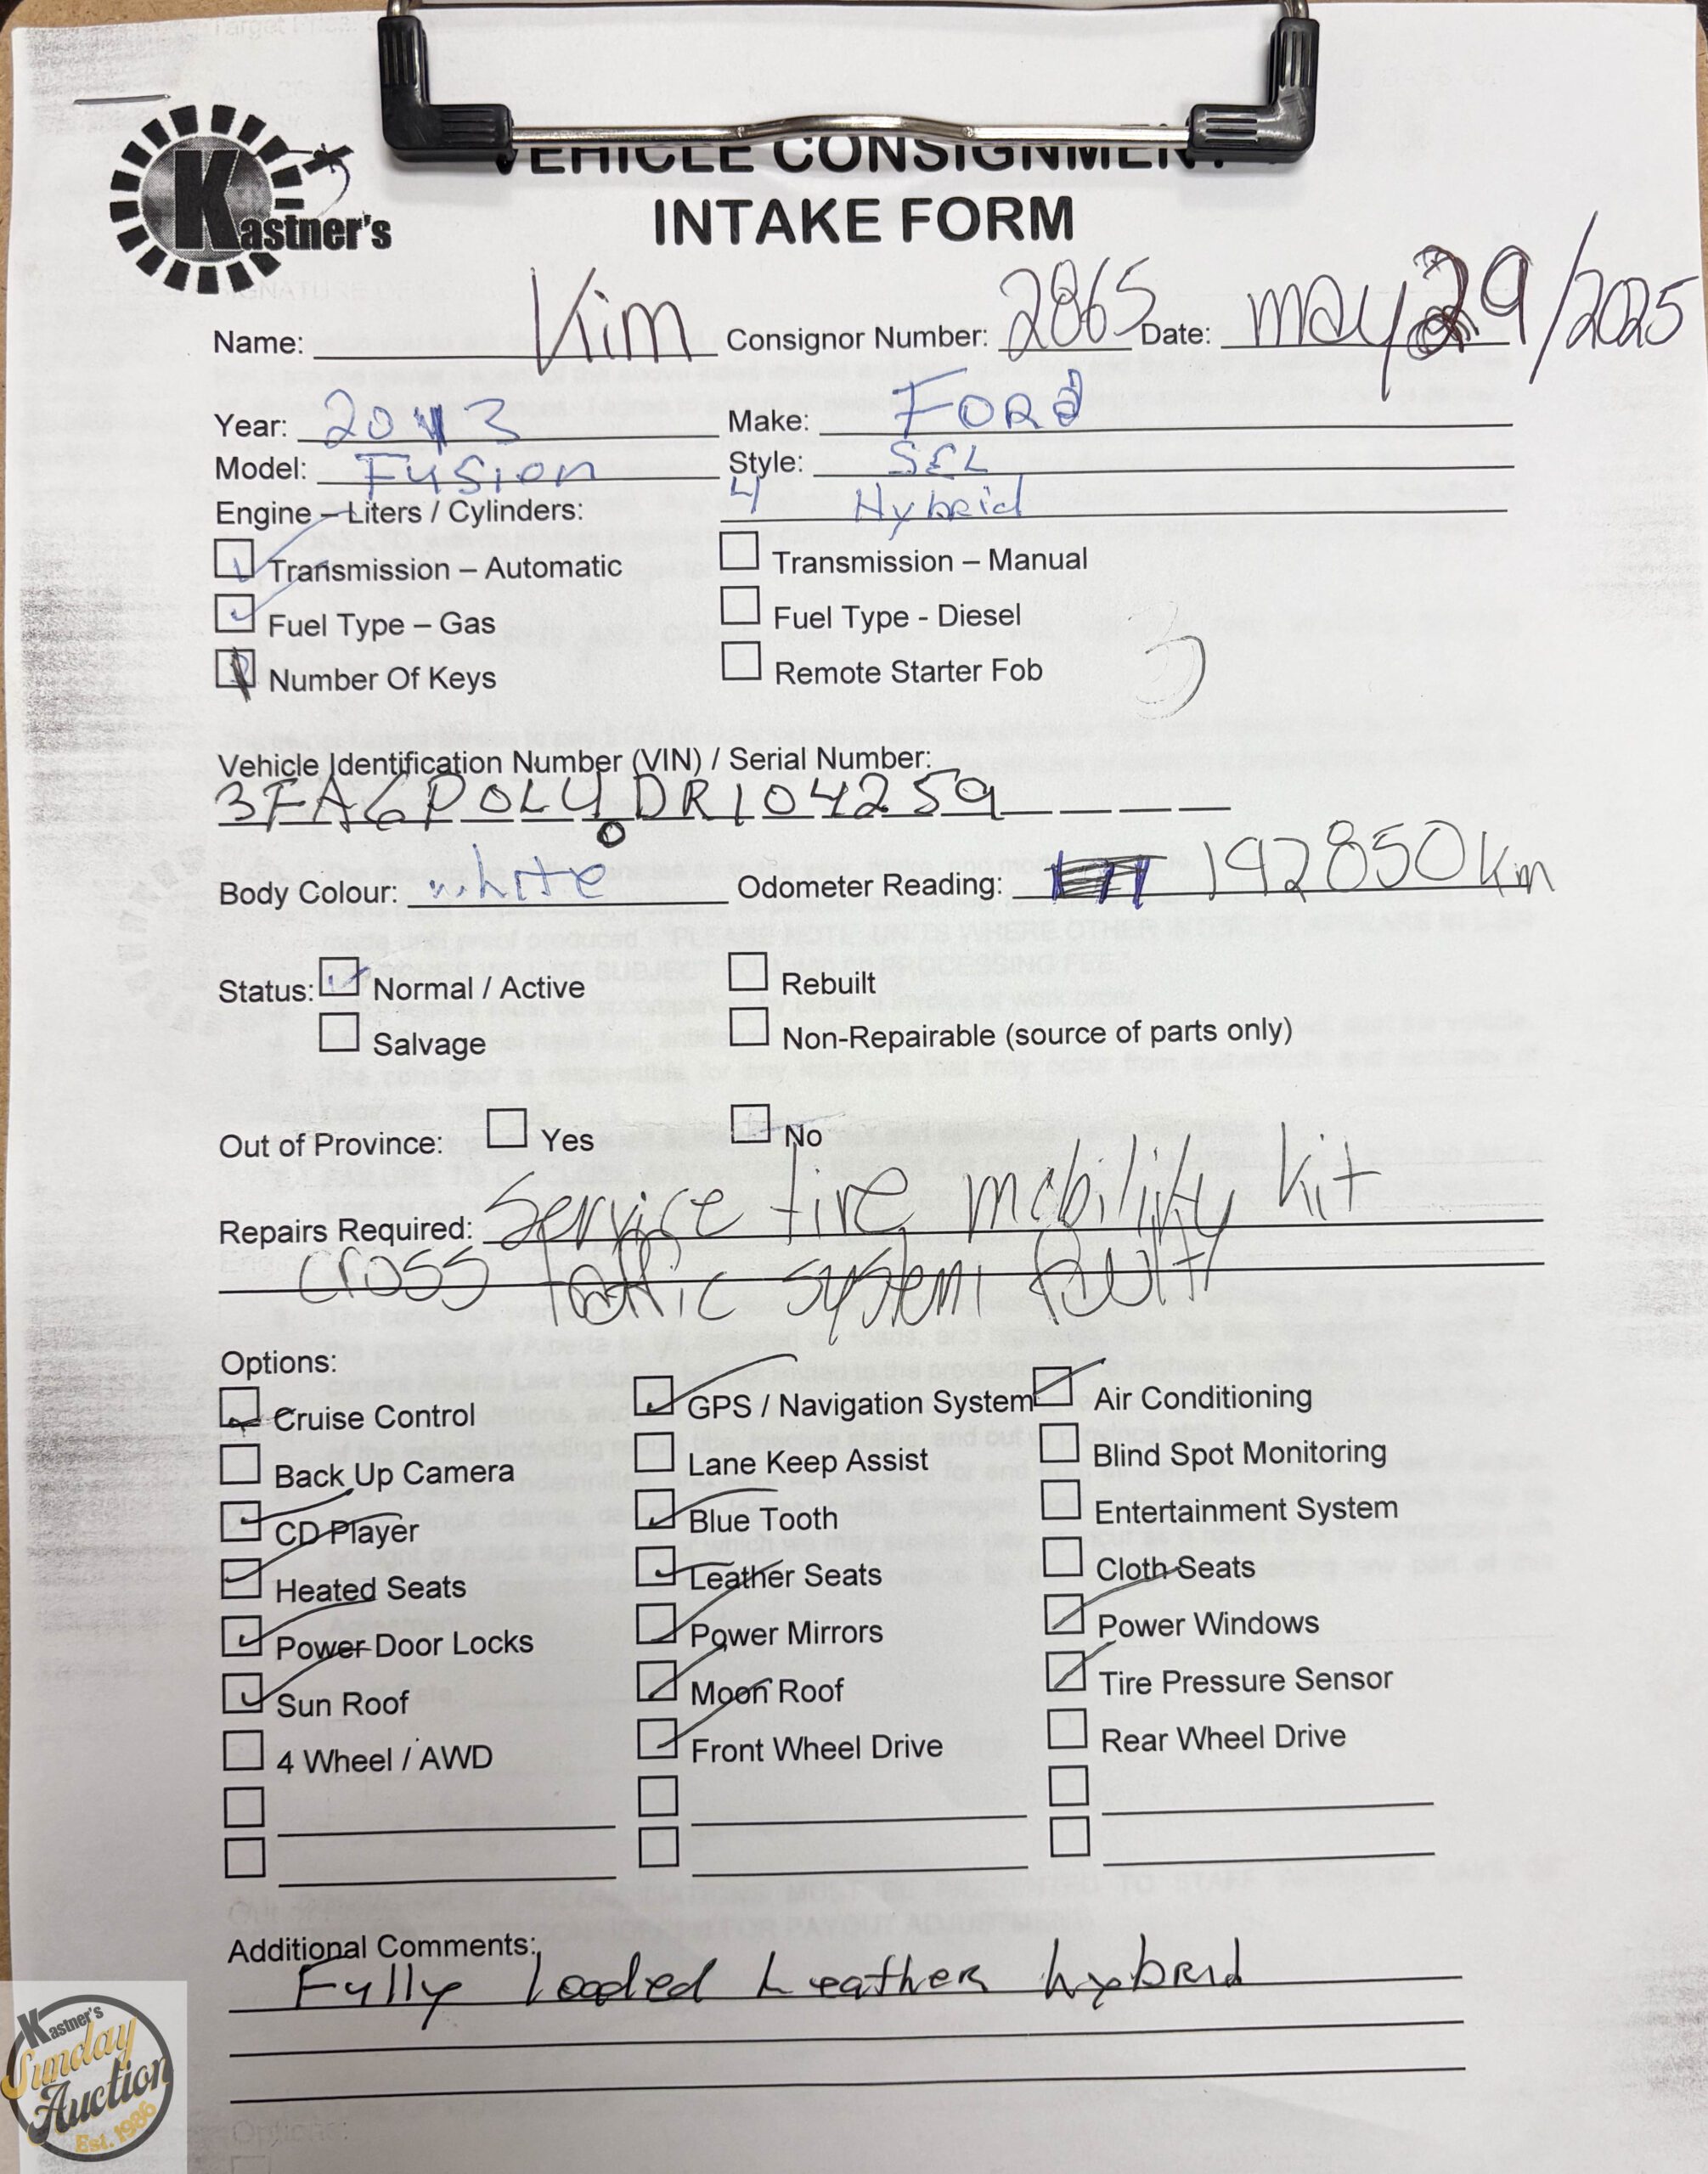 VEHICLE CONSIGNMENT
INTAKE FORM
Kastner's
Name: Kim Consignor Number: 2865 Date: may 29/2025
Year: 2013 Make: Ford
Model: Fusion Style: SEL
Engine – Liters / Cylinders: 4 Hybrid
Transmission – Automatic Transmission – Manual
Fuel Type – Gas Fuel Type - Diesel
Number Of Keys Remote Starter Fob
Vehicle Identification Number (VIN) / Serial Number:
3FA6P0LU DR104259
0
Body Colour: white Odometer Reading: 192850 Km
Status: Normal / Active Rebuilt
Salvage Non-Repairable (source of parts only)
Out of Province: Yes No
Repairs Required: Service tire mobility kit
cross traffic system fault
Options:
Cruise Control GPS / Navigation System Air Conditioning
Back Up Camera Lane Keep Assist Blind Spot Monitoring
CD Player Blue Tooth Entertainment System
Heated Seats Leather Seats Cloth Seats
Power Door Locks Power Mirrors Power Windows
Sun Roof Moon Roof Tire Pressure Sensor
4 Wheel / AWD Front Wheel Drive Rear Wheel Drive
Additional Comments:
Fully Loaded Leather hybrid
Kastner's
Sunday
Auction
Est. 1986
Options: